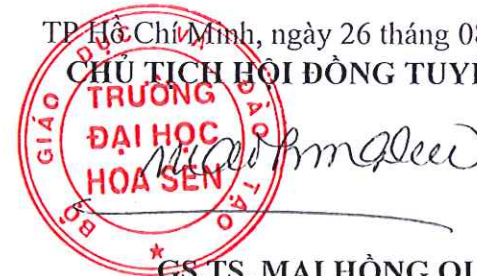 TP Hồ Chí Minh, ngày 26 tháng 08
CHỦ TỊCH HỘI ĐỒNG TUYỂ
BỘ GIÁO DỤC VÀ ĐÀO TẠO
TRƯỜNG
ĐẠI HỌC
HOA SEN
GS.TS. MAI HỒNG QU